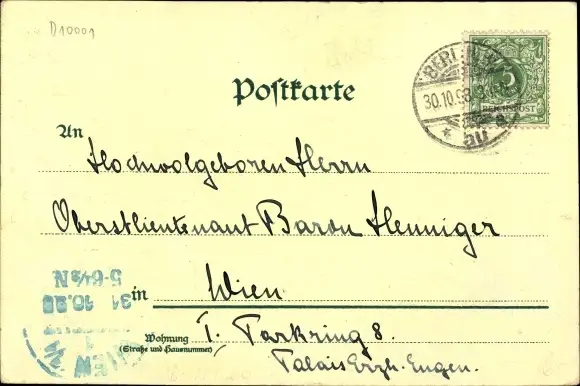 D10001
BERLIN W
30.10.98. 3-4 N.
5
REICHSPOST
Postkarte
An
Hochwolgeboren Herrn
Oberstlieutenant Baron Henniger
in Wien
Wohnung
(Straße und Hausnummer)
I. Parkring 8.
Palais Erzh. Eugen.
WIEN 1/1
31 10.98
5-6½N.